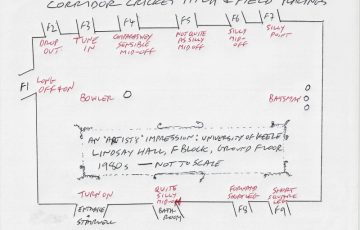 CORRIDOR CRICKET PITCH & FIELD PLACINGS
F2 F3 F4 F5 F6 F7
DROP OUT
TUNE IN
COMPARATIVELY SENSIBLE MID-OFF
NOT QUITE AS SILLY MID OFF
SILLY MID-OFF
SILLY POINT
F1
LONG OFF + ON
BOWLER
BATSMAN
AN "ARTIST'S" IMPRESSION: UNIVERSITY OF KEELE
LINDSAY HALL, F BLOCK, GROUND FLOOR.
1980s — NOT TO SCALE
TURN ON
QUITE SILLY MID-ON
FORWARD SHORT LEG
SHORT SQUARE LEG
ENTRANCE + STAIRWELL
BATH ROOM
F8
F9